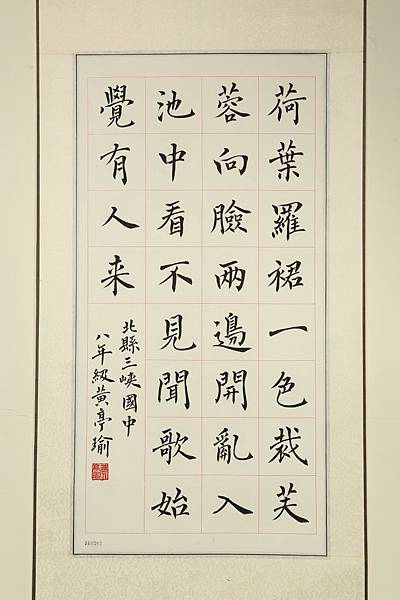 荷葉羅裙一色裁芙
蓉向臉兩邊開亂入
池中看不見聞歌始
覺有人来
北縣三峽國中
八年級黃亭瑜